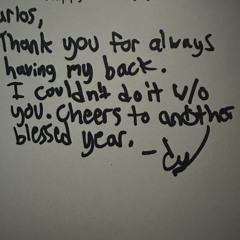 urlos,
Thank you for always
having my back.
I couldn't do it w/o
you. Cheers to another
blessed year.